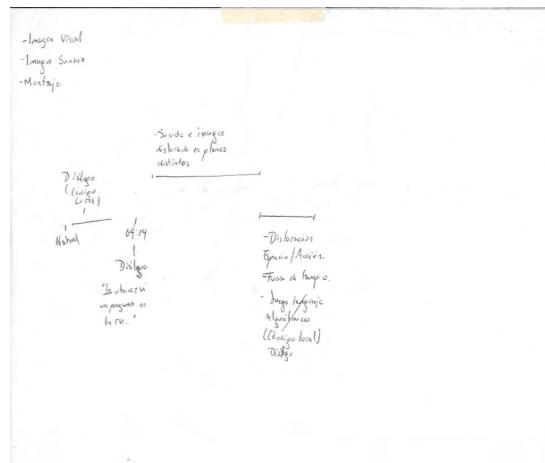 -Imagen Visual
-Imagen Sonora
-Montaje
-Sonido e imagen
dislocada en planos
distintos
Diálogo
(Código
Local)
Natural
04:14
Diálogo
-Dislocación
Espacio/Acción.
-Fuera de tiempo.
- Juego lenguaje
Algorítmico
(Código local)
Diálogo